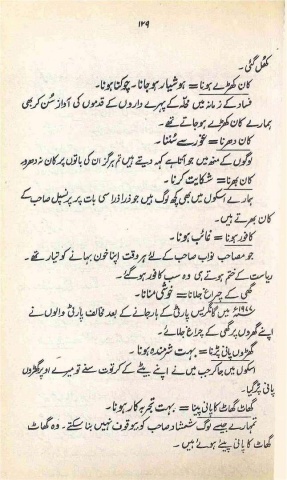 ۱۲۹
کھُل گئی۔
کان کھڑے ہونا = ہوشیار ہو جانا۔ چوکنّا ہونا۔
فساد کے زمانہ میں محلّہ کے پہرے داروں کے قدموں کی آواز سُن کر بھی
ہمارے کان کھڑے ہو جاتے تھے۔
کان دھرنا = غور سے سُننا۔
لوگوں کے منھ میں جو آتا ہے کہہ دیتے ہیں تم ہرگز ان کی باتوں پر کان نہ دھرو
کان بھرنا = شکایت کرنا۔
ہمارے اسکول میں بھی کچھ لوگ ہیں جو ذرا ذرا سی بات پر پرنسپل صاحب کے
کان بھرتے ہیں۔
کافور ہونا = غائب ہونا۔
جو مصاحب نواب صاحب کے لئے ہر وقت اپنا خون بہانے کو تیار تھے۔
ریاست کے ختم ہوتے ہی وہ سب کافور ہو گئے۔
گھی کے چراغ جلانا = خوشی منانا۔
۱۹۷۷ء میں کانگریس پارٹی کے ہار جانے کے بعد مخالف پارٹی والوں نے
اپنے گھروں پر گھی کے چراغ جلائے۔
گھڑوں پانی پڑنا = بہت شرمندہ ہونا۔
اسکول میں جا کر جب میں نے اپنے بیٹے کے کرتوت سنے تو میرے اوپر گھڑوں
پانی پڑ گیا۔
گھاٹ گھاٹ کا پانی پینا = بہت تجربہ کار ہونا۔
تمہارے جیسے لوگ شمشاد صاحب کو بیوقوف نہیں بنا سکتے۔ وہ گھاٹ
گھاٹ کا پانی پیئے ہوئے ہیں۔